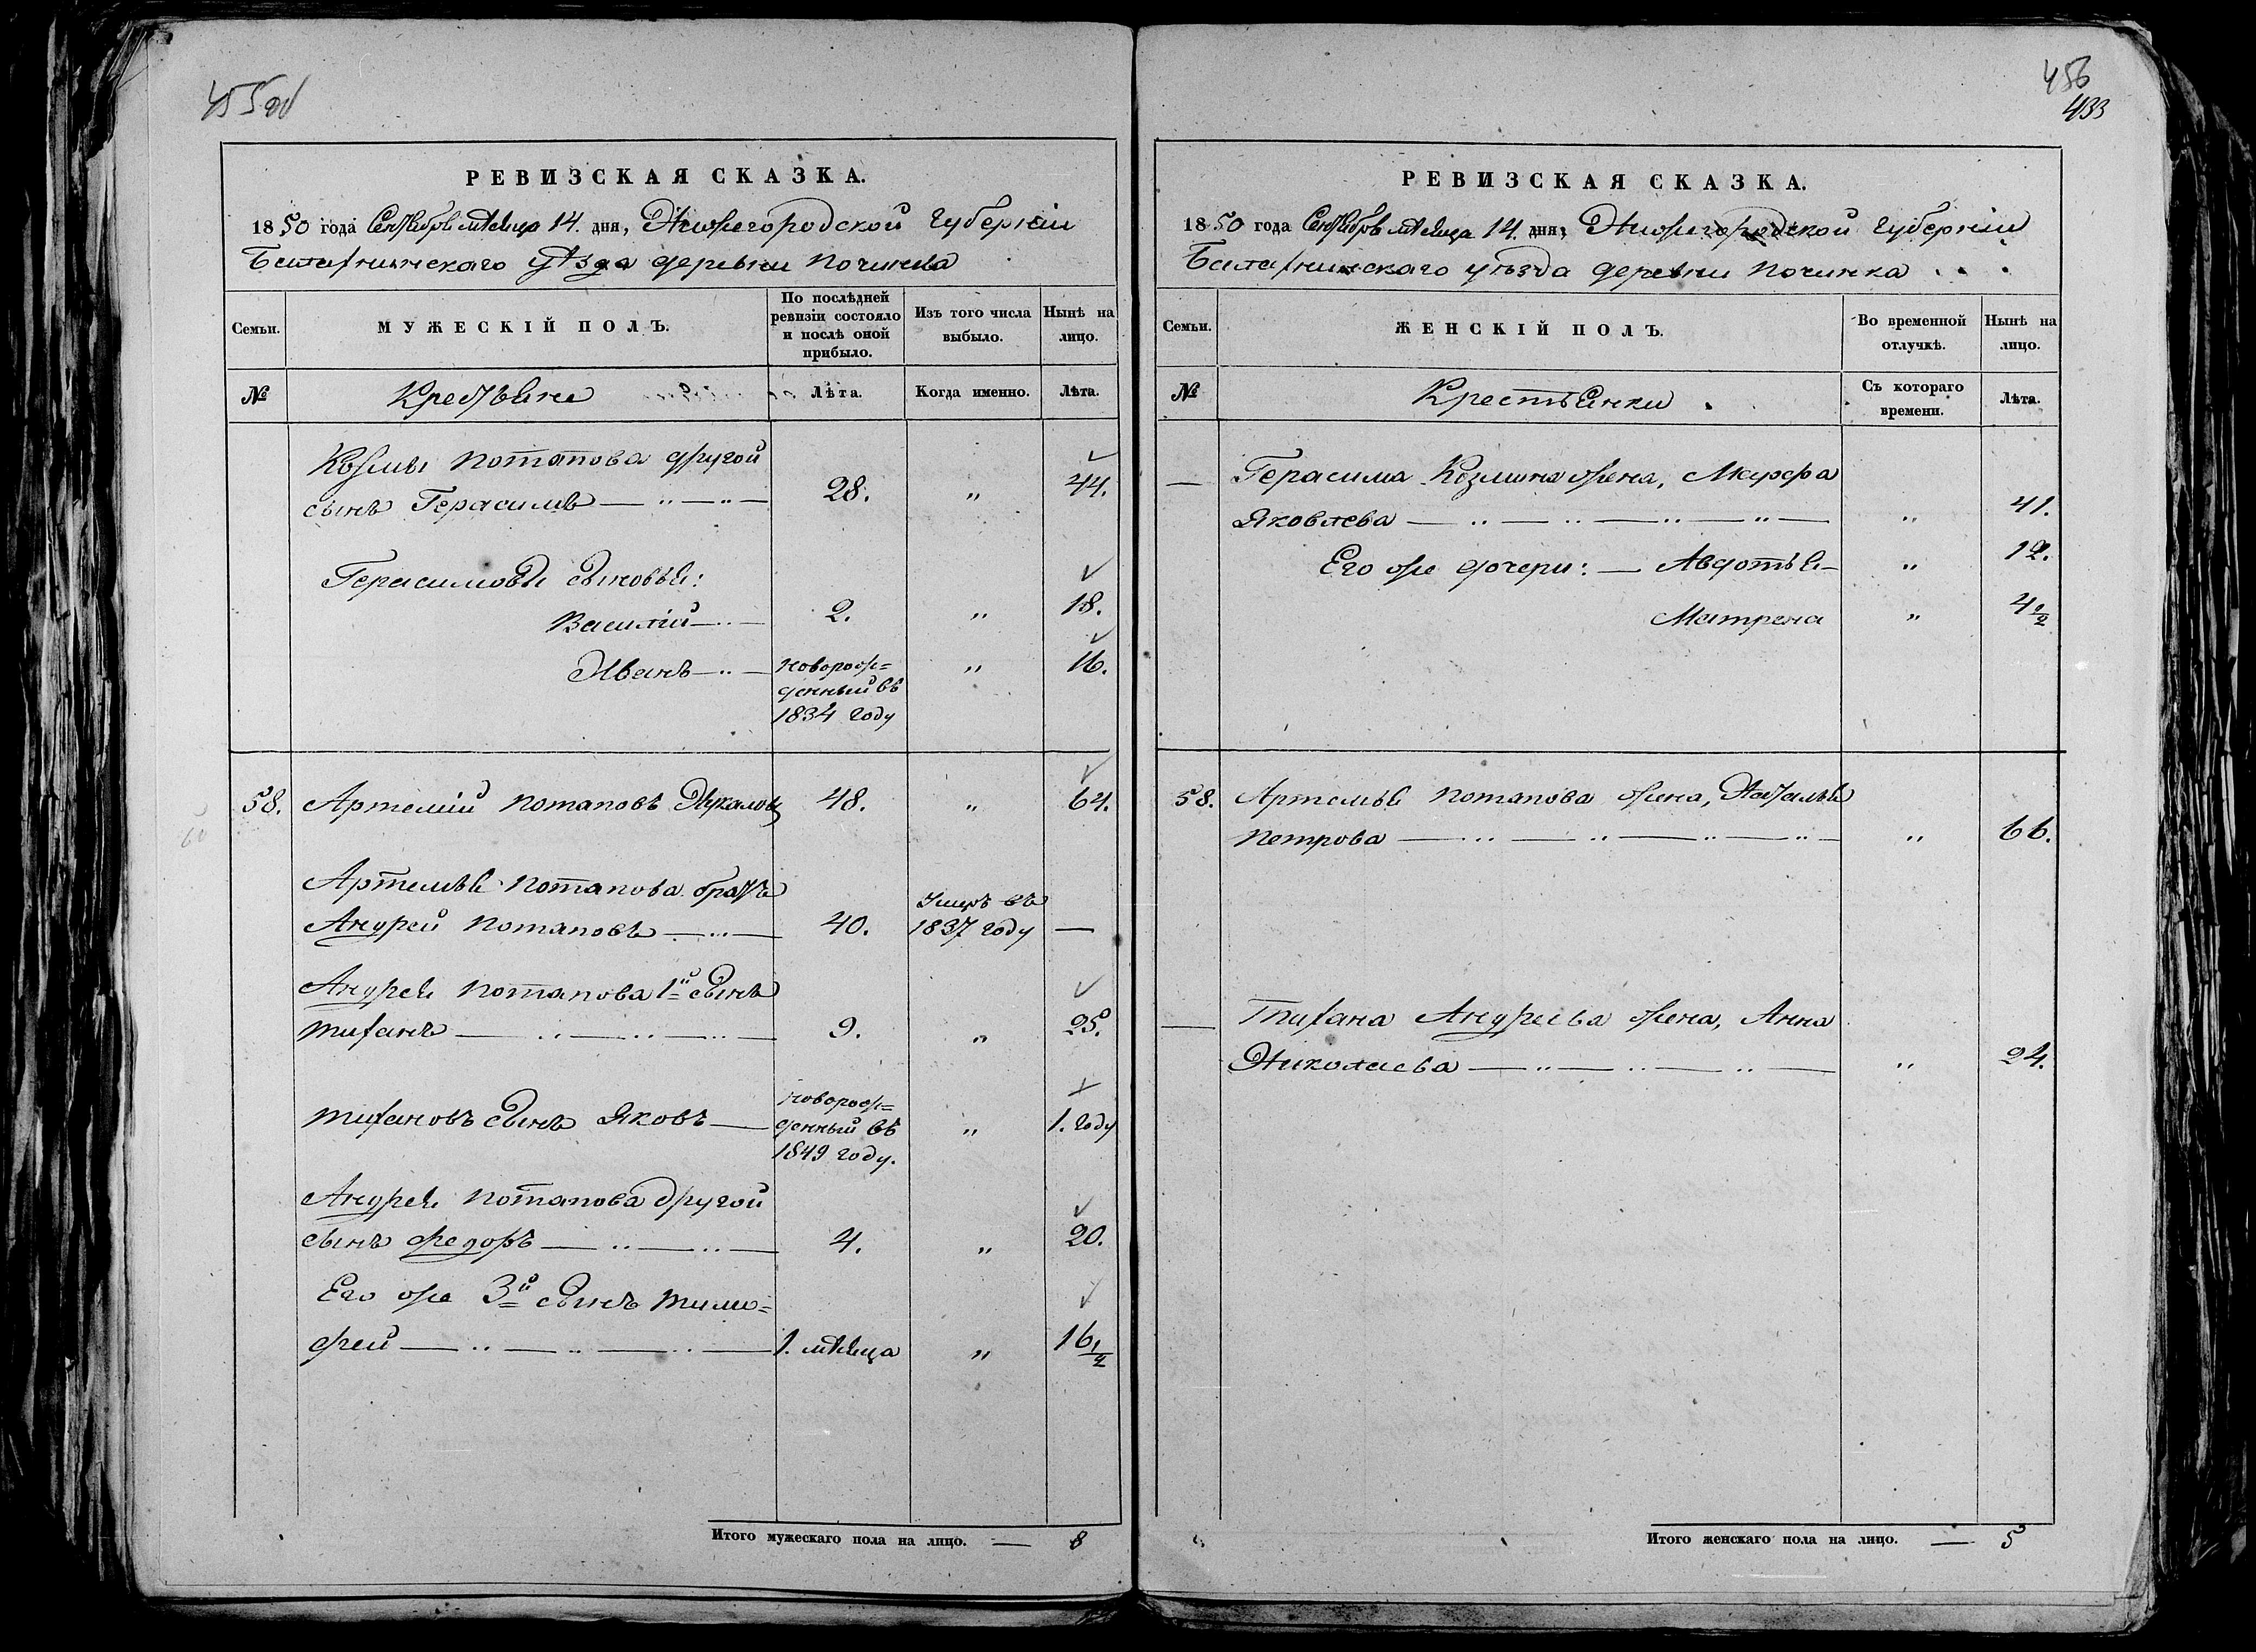 455об
РЕВИЗСКАЯ СКАЗКА.
1850 года Сентября мѣсяца 14. дня, Нижегородской Губерніи
Балахнинскаго уѣзда деревни Починка
Семьи.
МУЖЕСКІЙ ПОЛЪ.
По послѣдней
ревизіи состояло
и послѣ оной
прибыло.
Изъ того числа
выбыло.
Нынѣ на
лицо.
№
Крестьяне
Лѣта.
Когда именно.
Лѣта.
Козмы Потапова другой
сынъ Герасимъ 28. „ 44.
Герасимовы сыновья:
Василій 2. „ 18.
Иванъ новорож=
денный въ
1834 году „ 16.
58. Артемій Потаповъ 48. „ 64.
Артемья Потапова братъ
Андрей Потаповъ 40. Умеръ въ
1837 году —
Андрея Потапова 1й сынъ
Тифанъ 9. „ 25.
Тифановъ сынъ Яковъ новорож=
денный въ
1849 году. „ 1. году
Андрея Потапова другой
сынъ Федоръ 4. „ 20.
Его же 3й сынъ Тимо=
фей 1. мѣсяца „ 16 1/2
Итого мужескаго пола на лицо. — 8
456
433
РЕВИЗСКАЯ СКАЗКА.
1850 года Сентября мѣсяца 14. дня, Нижегородской Губерніи
Балахнинскаго уѣзда деревни Починка
Семьи.
ЖЕНСКІЙ ПОЛЪ.
Во временной
отлучкѣ.
Нынѣ на
лицо.
№
Крестьянки
Съ котораго
времени.
Лѣта.
— Герасима Козмина жена,
Яковлева „ 41.
Его же дочери: — Авдотья „ 12.
Матрена „ 4 1/2
58. Артемья Потапова жена, Наталья
Петрова „ 66.
— Тифана Андреева жена, Анна
Николаева „ 24.
Итого женскаго пола на лицо. — 5